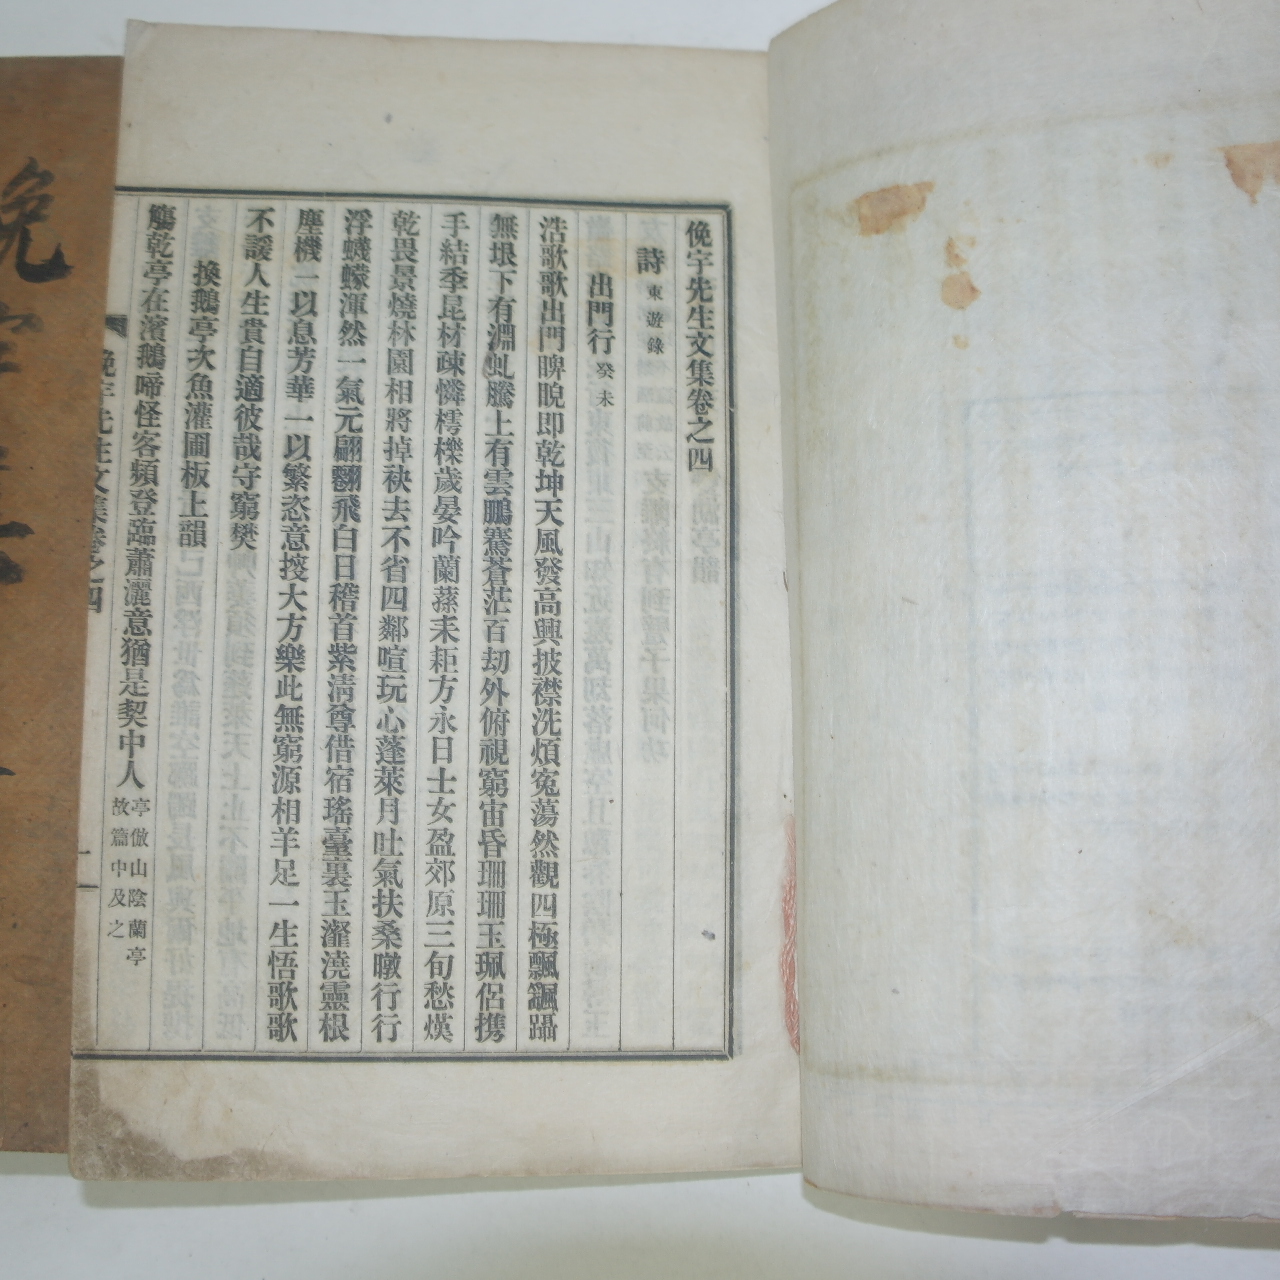 俛宇先生文集卷之四
詩 東遊錄
出門行 癸未
浩歌歌出門睥睨即乾坤天風發高興披襟洗煩寃蕩然觀四極飄颻躡
無垠下有淵虬騰上有雲鵬騫蒼茫百劫外俯視窮宙昏珊珊玉珮侶携
手結季昆材疎憐樗櫟歲晏吟蘭蓀耒耟方永日士女盈郊原三旬愁熯
乾畏景燒林園相將掉秧去不省四鄰喧玩心蓬萊月吐氣扶桑暾行行
浮蠛蠓渾然一氣元翩翻飛白日稽首紫淸尊借宿瑤臺裏玉瀣澆靈根
塵機一以息芳華一以繁恣意挖大方樂此無窮源相羊足一生悟歌歌
不諼人生貴自適彼哉守窮樊
換鵝亭次魚灌圃板上韻
觴乾亭在濱鵝啼怪客頻登臨蕭灑意猶是契中人 亭倣山陰蘭亭
故篇中及之
俛宇先生文集卷之四
一